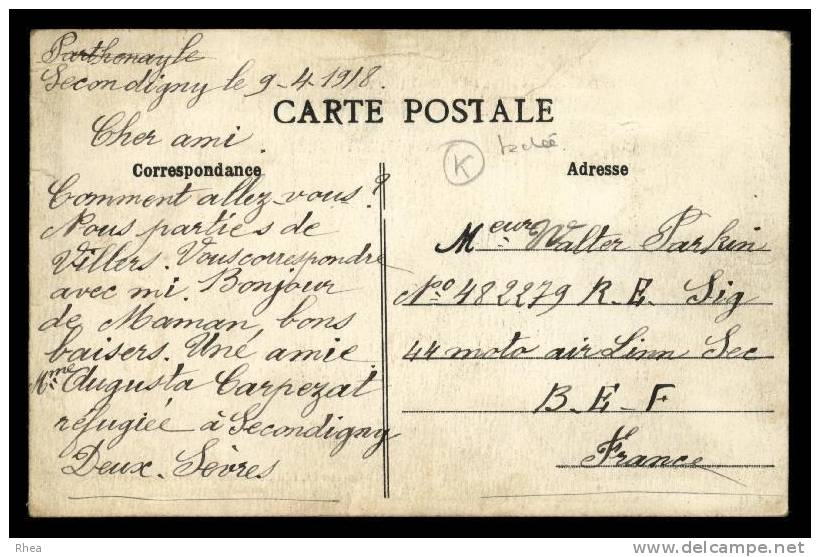 Parthenay le
Secondigny le 9-4-1918.
CARTE POSTALE
Cher ami.
K
Correspondance
Adresse
Comment allez-vous?
Nous parties de
Villers. Vous correspondre
avec mi. Bonjour
de Maman, bons
baisers. Une amie
Mme Augusta Carpezat
réfugiée à Secondigny
Deux-Sèvres
Meur Walter Parkin
No 482279 R.E. Sig
44 moto air Linn Sec
B-E-F
France
Rhea
www.delcampe.net